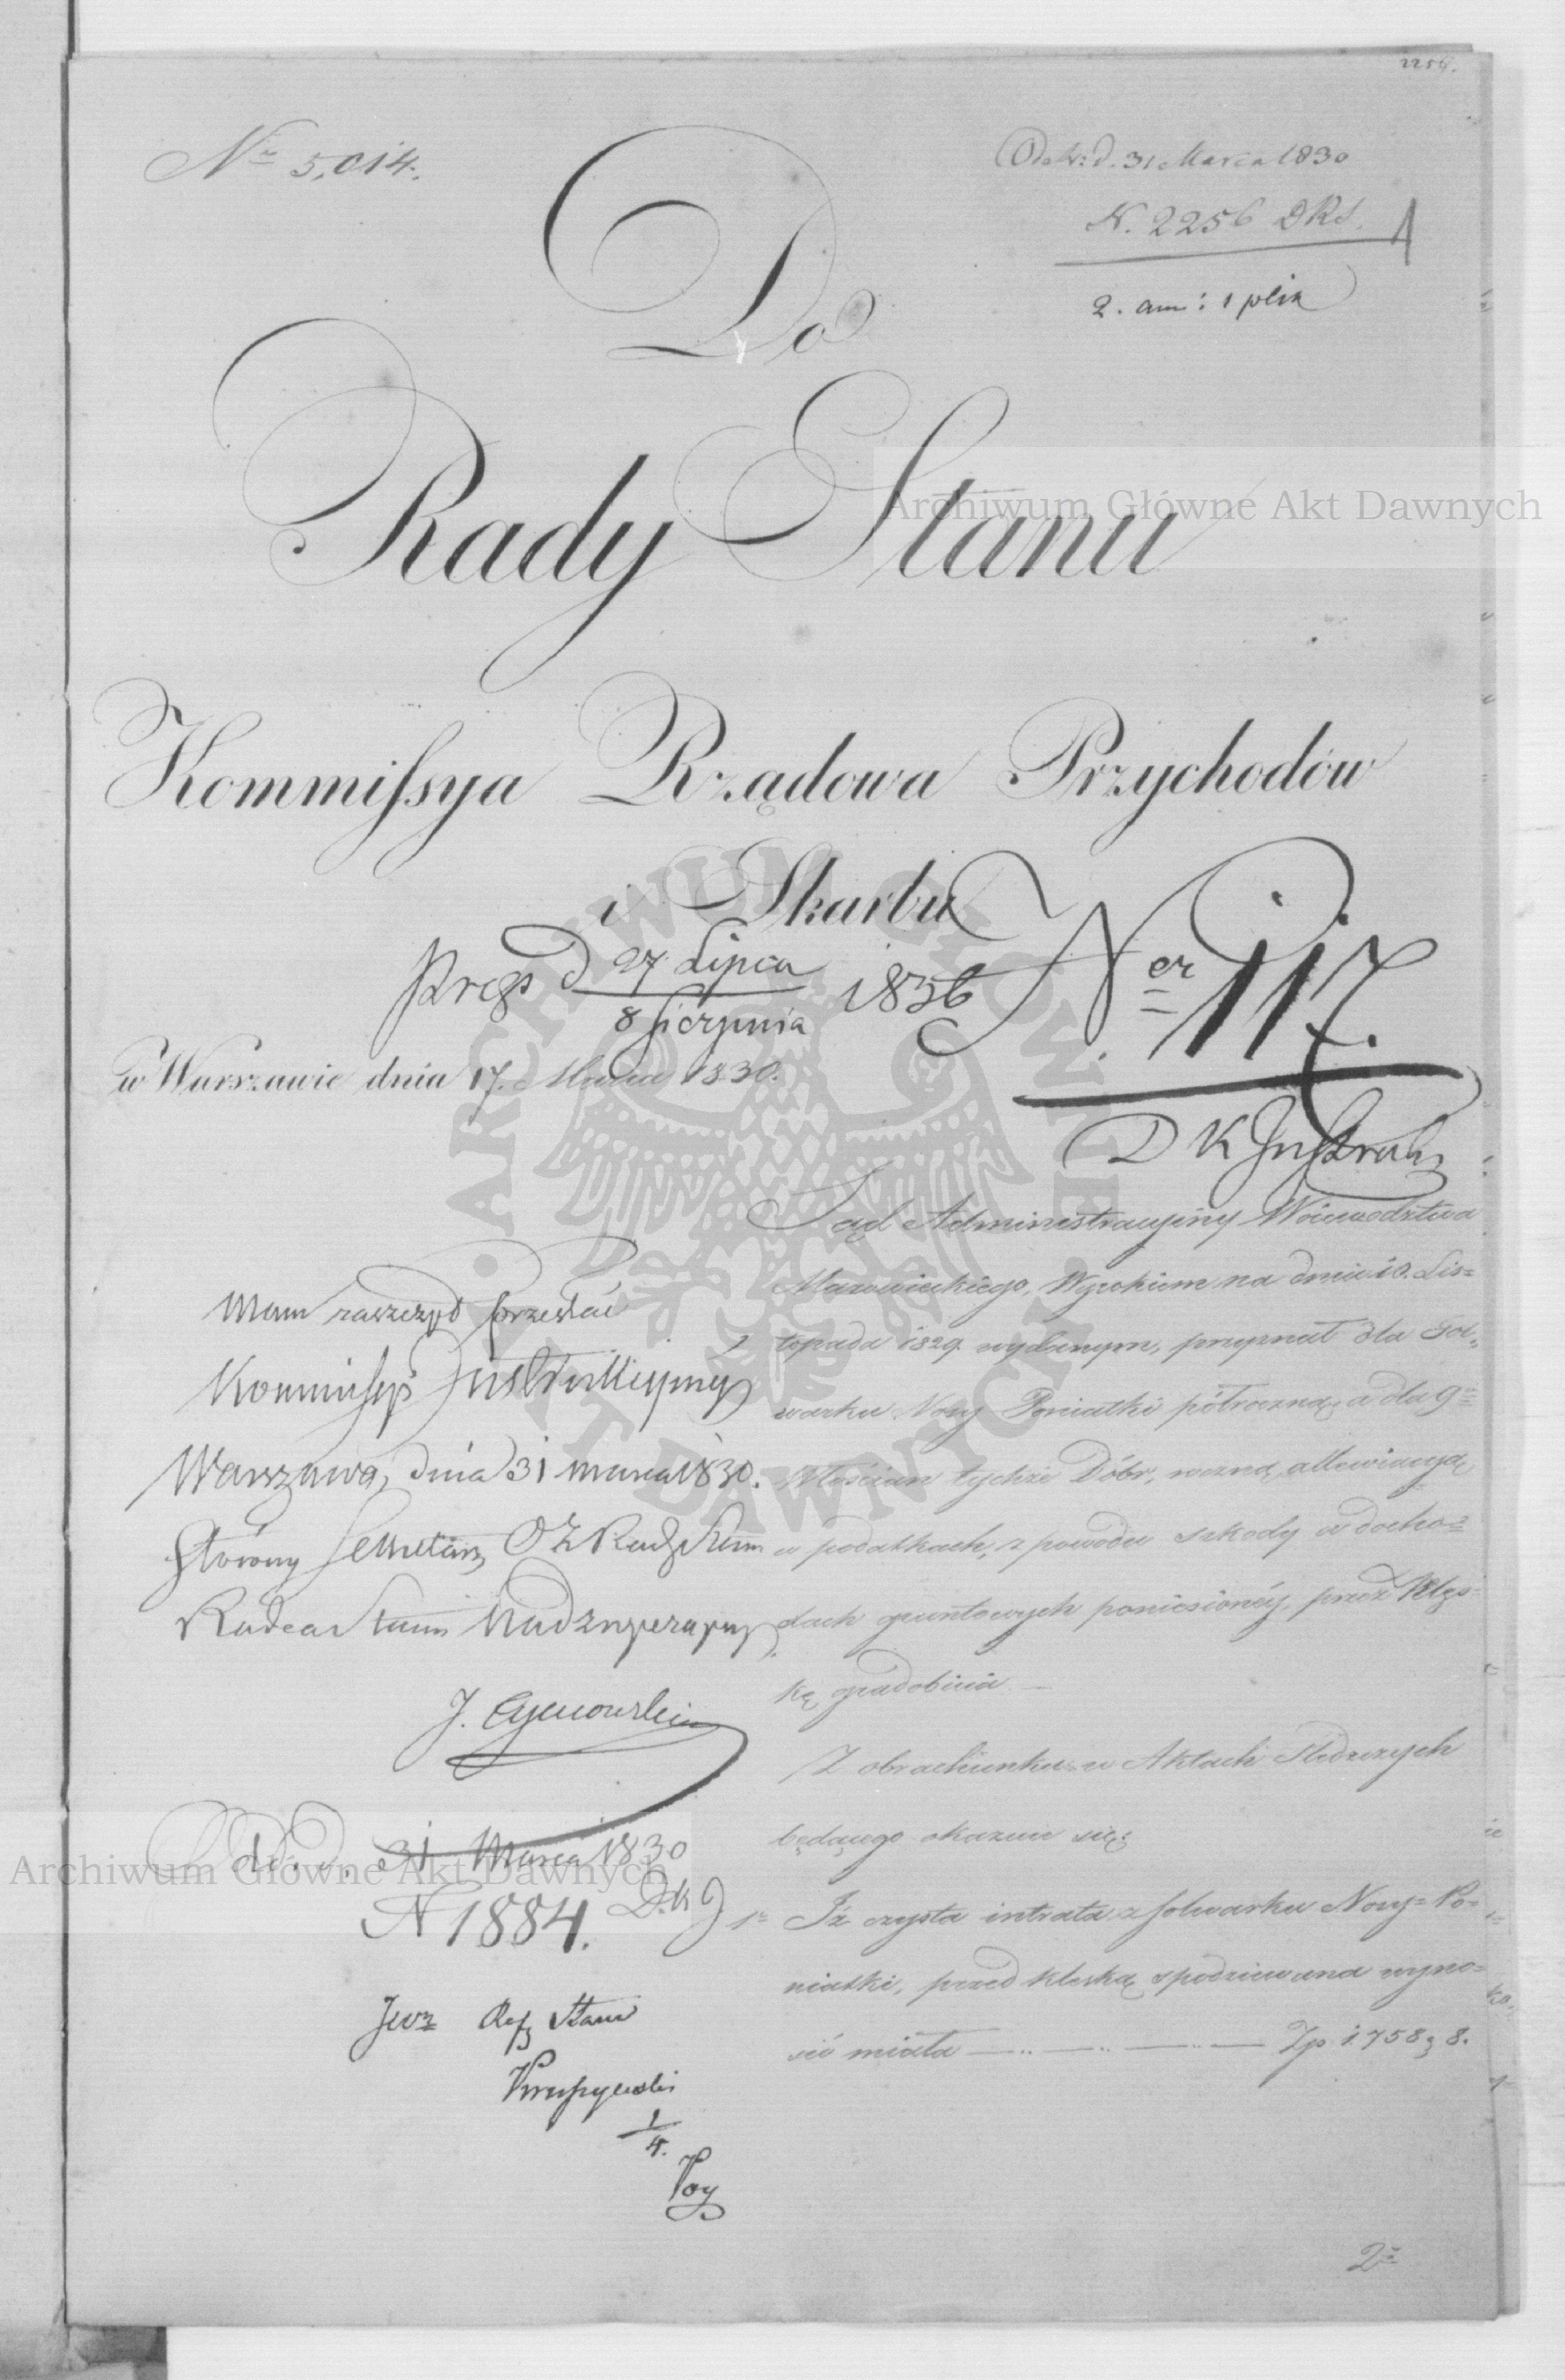 2256.
Nr 5,014.
Odebr: d. 31 Marca 1830
N. 2256 DRS.
2. an: 1 plik
Do
Rady Stanu
Archiwum Główne Akt Dawnych
Kommissya Rządowa Przychodów
i Skarbu
d 27 Lipca
8 Sierpnia 1836
Ner 117.
w Warszawie dnia 17. Marca 1830.
D K Instruk
Sąd Administracyiny Woiewodztwa
Mazowieckiego, Wyrokiem na dniu 10. Lis=
topada 1829 wydanym, przyznał dla fol=
warku Nowy Poniatki półroczną, a dla 9=
Włościan tychże Dóbr, roczną allewiacyą
w podatkach, z powodu szkody w docho=
dach gruntowych poniesionéy, przez klęs=
kę gradobicia. —
Z obrachunku w Aktach Śledczych
będącego okazuie się:
1o Iż czysta intrata z folwarku Nowy=Po=
niatki, przed klęską spodziewana wyno=
sić miała — Zp 1.758 g 8.
2o
Mam zaszczyt przesłać
Kommissyi Instrukcyiney
Warszawa, dnia 31 marca 1830.
Sekretarz
Radca Stanu Nadzwyczayny
d. 31 Marca 1830
N 1884. D.K J
JWz Ref Stanu
1/4.
Archiwum Główne Akt Dawnych
ARCHIWUM GŁÓWNE AKT DAWNYCH